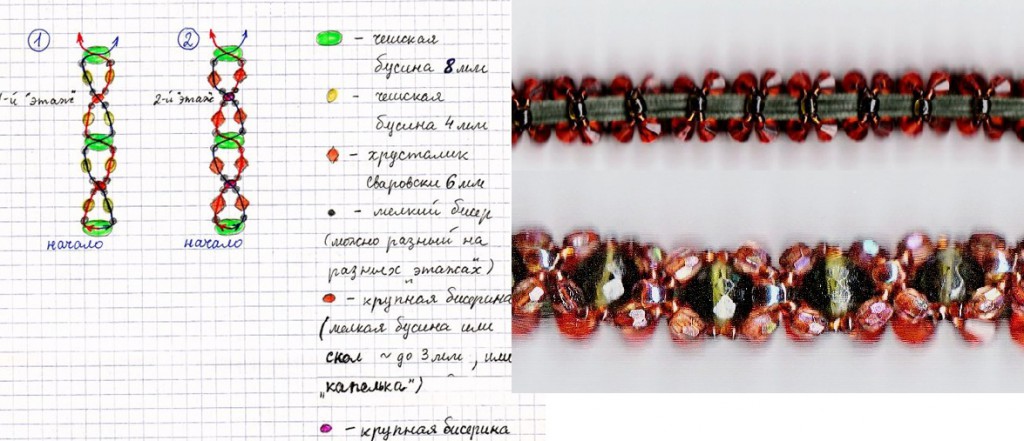 1
2
1-й "этаж"
2-й "этаж"
начало
начало
- чешская
бусина 8 мм
- чешская
бусина 4 мм
- хрусталик
Сваровски 6 мм
- мелкий бисер
(можно разный на
разных "этажах")
- крупная бисерина
(мелкая бусина или
скол ~ до 3 мм, или
"капелька")
- крупная бисерина